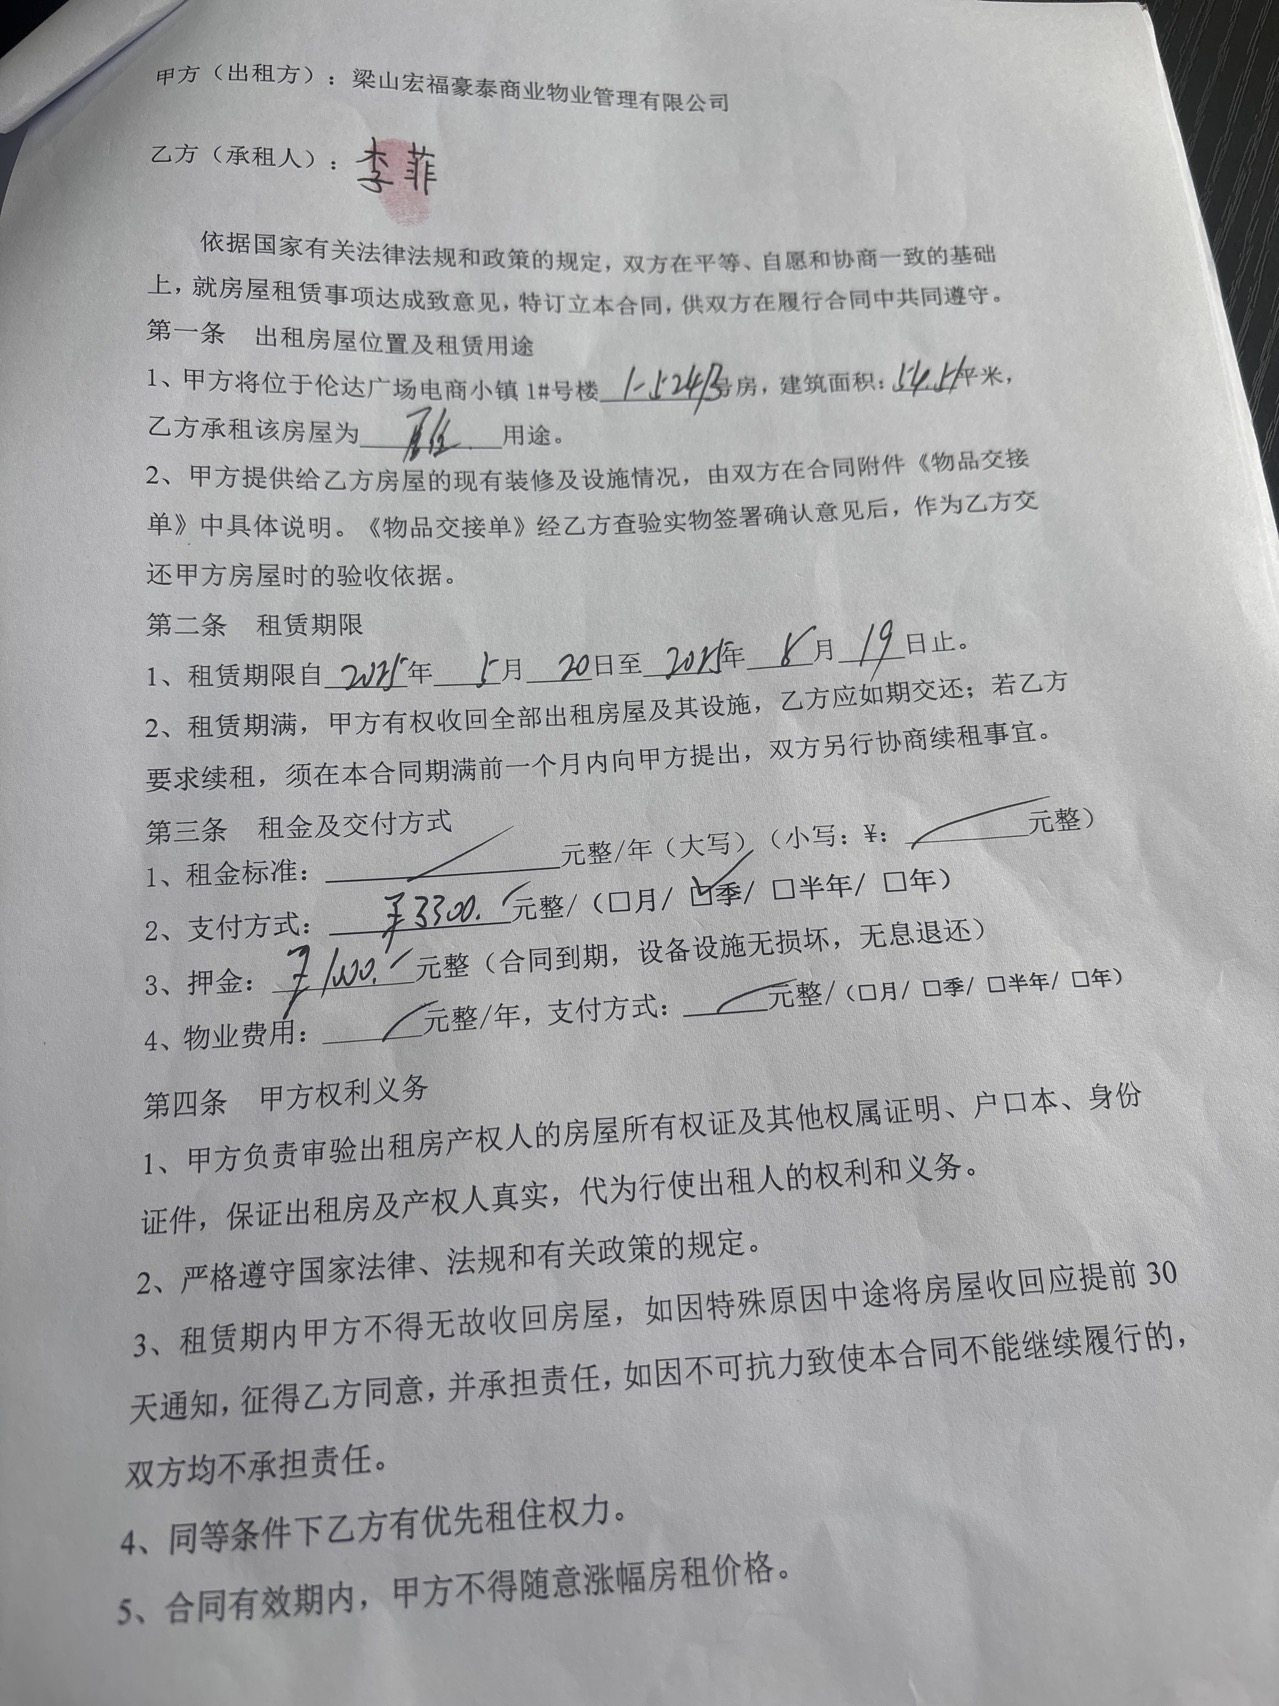 甲方（出租方）：梁山宏福豪泰商业物业管理有限公司
乙方（承租人）：李菲
依据国家有关法律法规和政策的规定，双方在平等、自愿和协商一致的基础
上，就房屋租赁事项达成致意见，特订立本合同，供双方在履行合同中共同遵守。
第一条 出租房屋位置及租赁用途
1、甲方将位于伦达广场电商小镇 1#号楼 1-524 号房，建筑面积：54.51平米，
乙方承租该房屋为 居住 用途。
2、甲方提供给乙方房屋的现有装修及设施情况，由双方在合同附件《物品交接
单》中具体说明。《物品交接单》经乙方查验实物签署确认意见后，作为乙方交
还甲方房屋时的验收依据。
第二条 租赁期限
1、租赁期限自 2025年 5月 20日至 2025年 8月 19日止。
2、租赁期满，甲方有权收回全部出租房屋及其设施，乙方应如期交还；若乙方
要求续租，须在本合同期满前一个月内向甲方提出，双方另行协商续租事宜。
第三条 租金及交付方式
1、租金标准：元整/年（大写）（小写：¥：元整）
2、支付方式：¥3300. 元整/（□月/ ☑季/ □半年/ □年）
3、押金：¥1000. 元整（合同到期，设备设施无损坏，无息退还）
4、物业费用：元整/年，支付方式：元整/（□月/ □季/ □半年/ □年）
第四条 甲方权利义务
1、甲方负责审验出租房产权人的房屋所有权证及其他权属证明、户口本、身份
证件，保证出租房及产权人真实，代为行使出租人的权利和义务。
2、严格遵守国家法律、法规和有关政策的规定。
3、租赁期内甲方不得无故收回房屋，如因特殊原因中途将房屋收回应提前 30
天通知，征得乙方同意，并承担责任，如因不可抗力致使本合同不能继续履行的，
双方均不承担责任。
4、同等条件下乙方有优先租住权力。
5、合同有效期内，甲方不得随意涨幅房租价格。